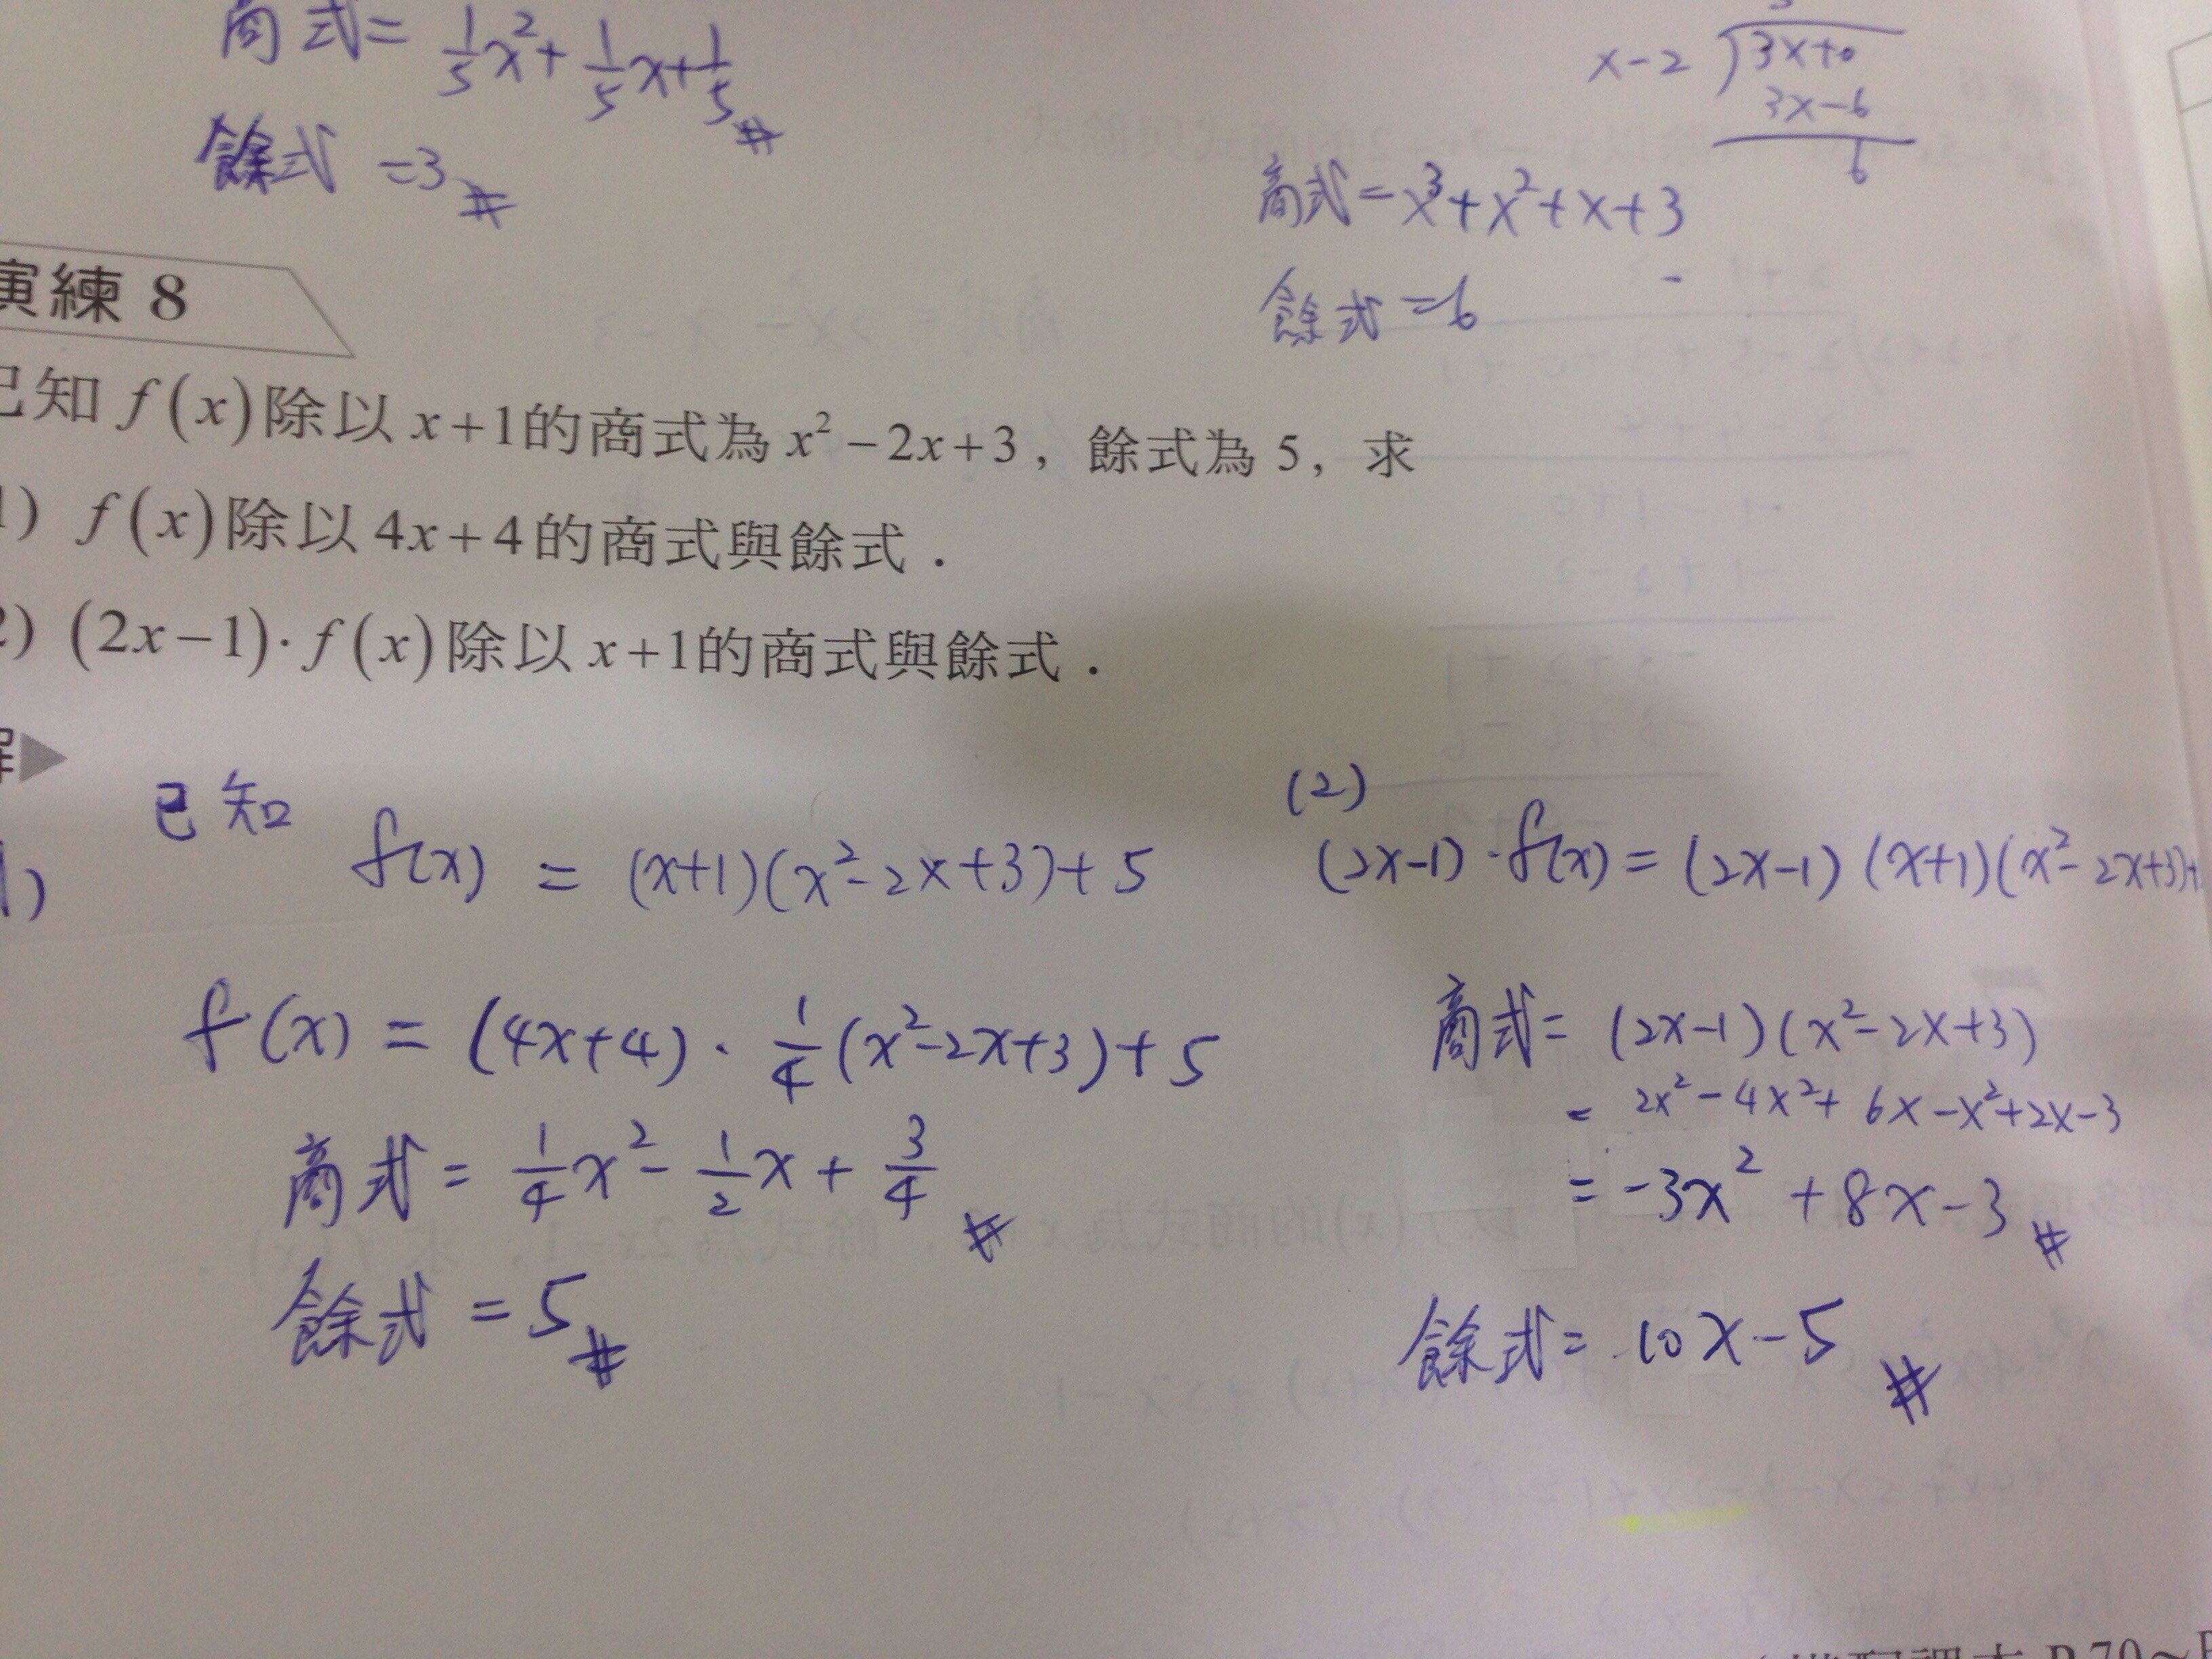 商式= 1/5x²+1/5x+1/5#
餘式 =3#
x-2 3x+0
3x-6
6
商式=x³+x²+x+3
餘式=6
演練 8
已知 f(x)除以 x+1的商式為 x²-2x+3，餘式為 5，求
1) f(x)除以 4x+4的商式與餘式．
2) (2x-1)·f(x)除以 x+1的商式與餘式．
解▶
1) 已知 f(x) = (x+1)(x²-2x+3)+5
f(x) = (4x+4)·1/4(x²-2x+3)+5
商式= 1/4x²-1/2x+3/4#
餘式=5#
(2)
(2x-1)·f(x)=(2x-1)(x+1)(x²-2x+3)+
商式=(2x-1)(x²-2x+3)
= 2x²-4x²+6x-x²+2x-3
=-3x²+8x-3#
餘式=10x-5#